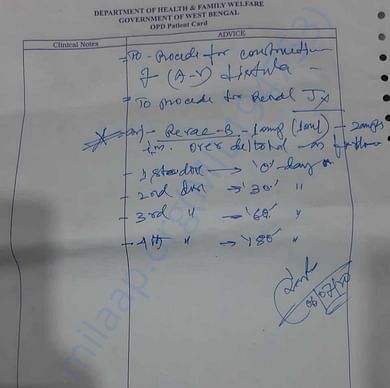 DEPARTMENT OF HEALTH & FAMILY WELFARE
GOVERNMENT OF WEST BENGAL
OPD Patient Card
Clinical Notes
ADVICE
= To - Procede for construction
of (A-V) fistula
= To procede for Renal
Inj - 1amp (1ml) - 2amps
i.m. over deltoid - as follows
- 1st dose → '0' day
- 2nd dose → '30' "
- 3rd " → '60' "
- 4th " → '180' "
milaap.org